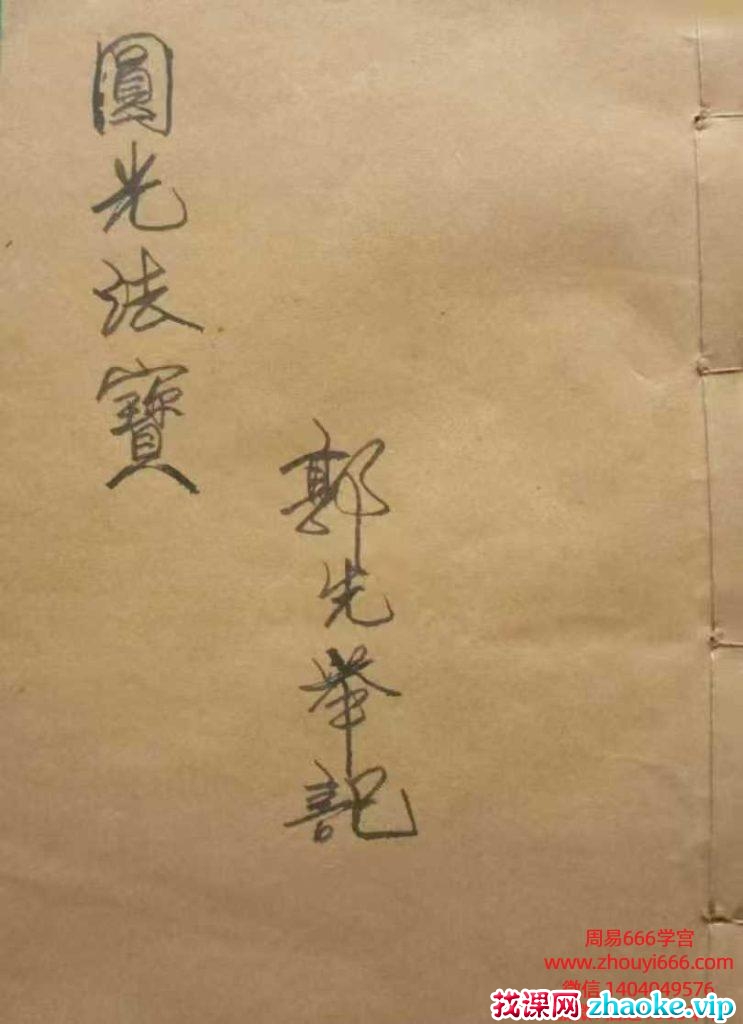 圓光法寶
郭先举記
周易666学宫
www.zhouyi666.com
微信 1404049576
找课网zhaoke.vip